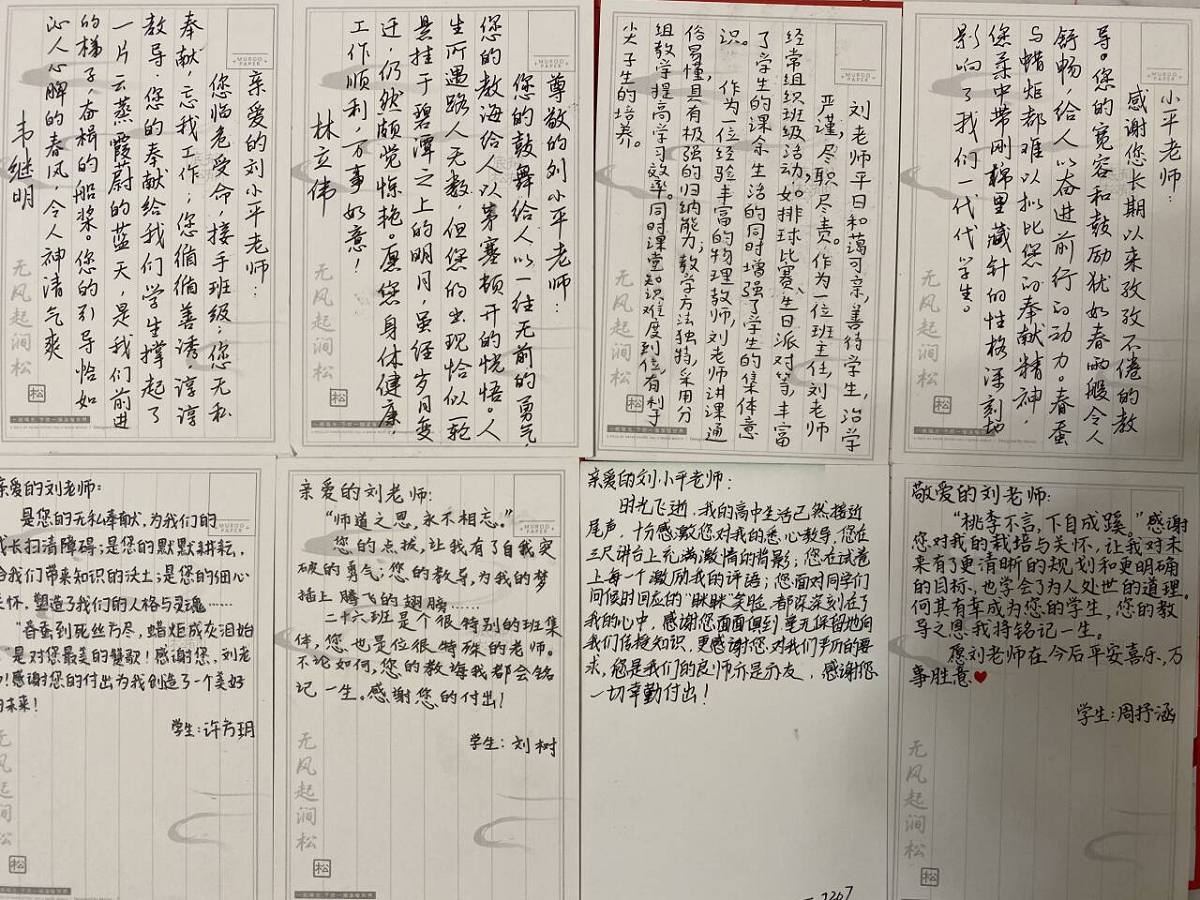 亲爱的刘小平老师:
您临危受命,接手班级;您无私
奉献,忘我工作;您循循善诱,谆谆
教导.您的奉献给我们学生撑起了
一片云蒸霞蔚的蓝天,是我们前进
的梯子,奋楫的船桨。您的引导恰如
沁人心脾的春风,令人神清气爽
韦继明
无风起涧松
松
MURGO
PAPER
尊敬的刘小平老师:
您的鼓舞给人以一往无前的勇气,
您的教诲给人以茅塞顿开的恍悟。人
生所遇路人无数,但您的出现恰似一轮
悬挂于碧潭之上的明月,虽经岁月变
迁,仍然颇觉惊艳。愿您身体健康,
工作顺利,万事如意!
林立伟
无风起涧松
松
MURGO
PAPER
刘老师平日和蔼可亲,善待学生,治学
严谨,尽职尽责。作为一位班主任,刘老师
经常组织班级活动,如排球比赛、生日派对等,丰富
了学生的课余生活的同时增强了学生的集体意
识。 作为一位经验丰富的物理教师,刘老师讲课通
俗易懂,具有极强的归纳能力;教学方法独特,采用分
组教学提高学习效率,同时课堂知识难度到位,有利于
尖子生的培养。
无风起涧松
松
MURGO
PAPER
小平老师:
感谢您长期以来孜孜不倦的教
导。您的宽容和鼓励犹如春雨般令人
舒畅,给人以奋进前行的动力。春蚕
与蜡炬都难以拟比您的奉献精神,
您柔中带刚、棉里藏针的性格深刻地
影响了我们一代代学生。
无风起涧松
松
MURGO
PAPER
亲爱的刘老师:
是您的无私奉献,为我们的
成长扫清障碍;是您的默默耕耘,
给我们带来知识的沃土;是您的细心
关怀,塑造了我们的人格与灵魂……
"春蚕到死丝方尽,蜡炬成灰泪始
"是对您最美的赞歌!感谢您,刘老
!感谢您的付出为我创造了一个美好
的未来!
学生:许方玥
无风起涧松
松
MURGO
PAPER
亲爱的刘老师:
"师道之恩,永不相忘。"
您的点拨,让我有了自我突
破的勇气;您的教导,为我的梦
插上腾飞的翅膀……
二十六班是个很特别的班集
体,您,也是位很特殊的老师。
不论如何,您的教诲我都会铭
记一生。感谢您的付出!
学生:刘树
无风起涧松
松
亲爱的刘小平老师:
时光飞逝,我的高中生活已然接近
尾声,十分感激您对我的悉心教导,您在
三尺讲台上充满激情的背影;您在试卷
上每一个激励我的评语;您面对同学们
问候时回应的"眯眯"笑脸,都深深刻在了
我的心中,感谢您面面俱到毫无保留地向
我们传授知识,更感谢您对我们严厉的要
求,您是我们的良师亦是亦友,感谢您
一切辛勤付出!
敬爱的刘老师:
"桃李不言,下自成蹊。"感谢
您对我的栽培与关怀,让我对未
来有了更清晰的规划和更明确
的目标,也学会了为人处世的道理。
何其有幸成为您的学生,您的教
导之恩我将铭记一生。
愿刘老师在今后平安喜乐,万
事胜意♥
学生:周抒涵
无风起涧松
松